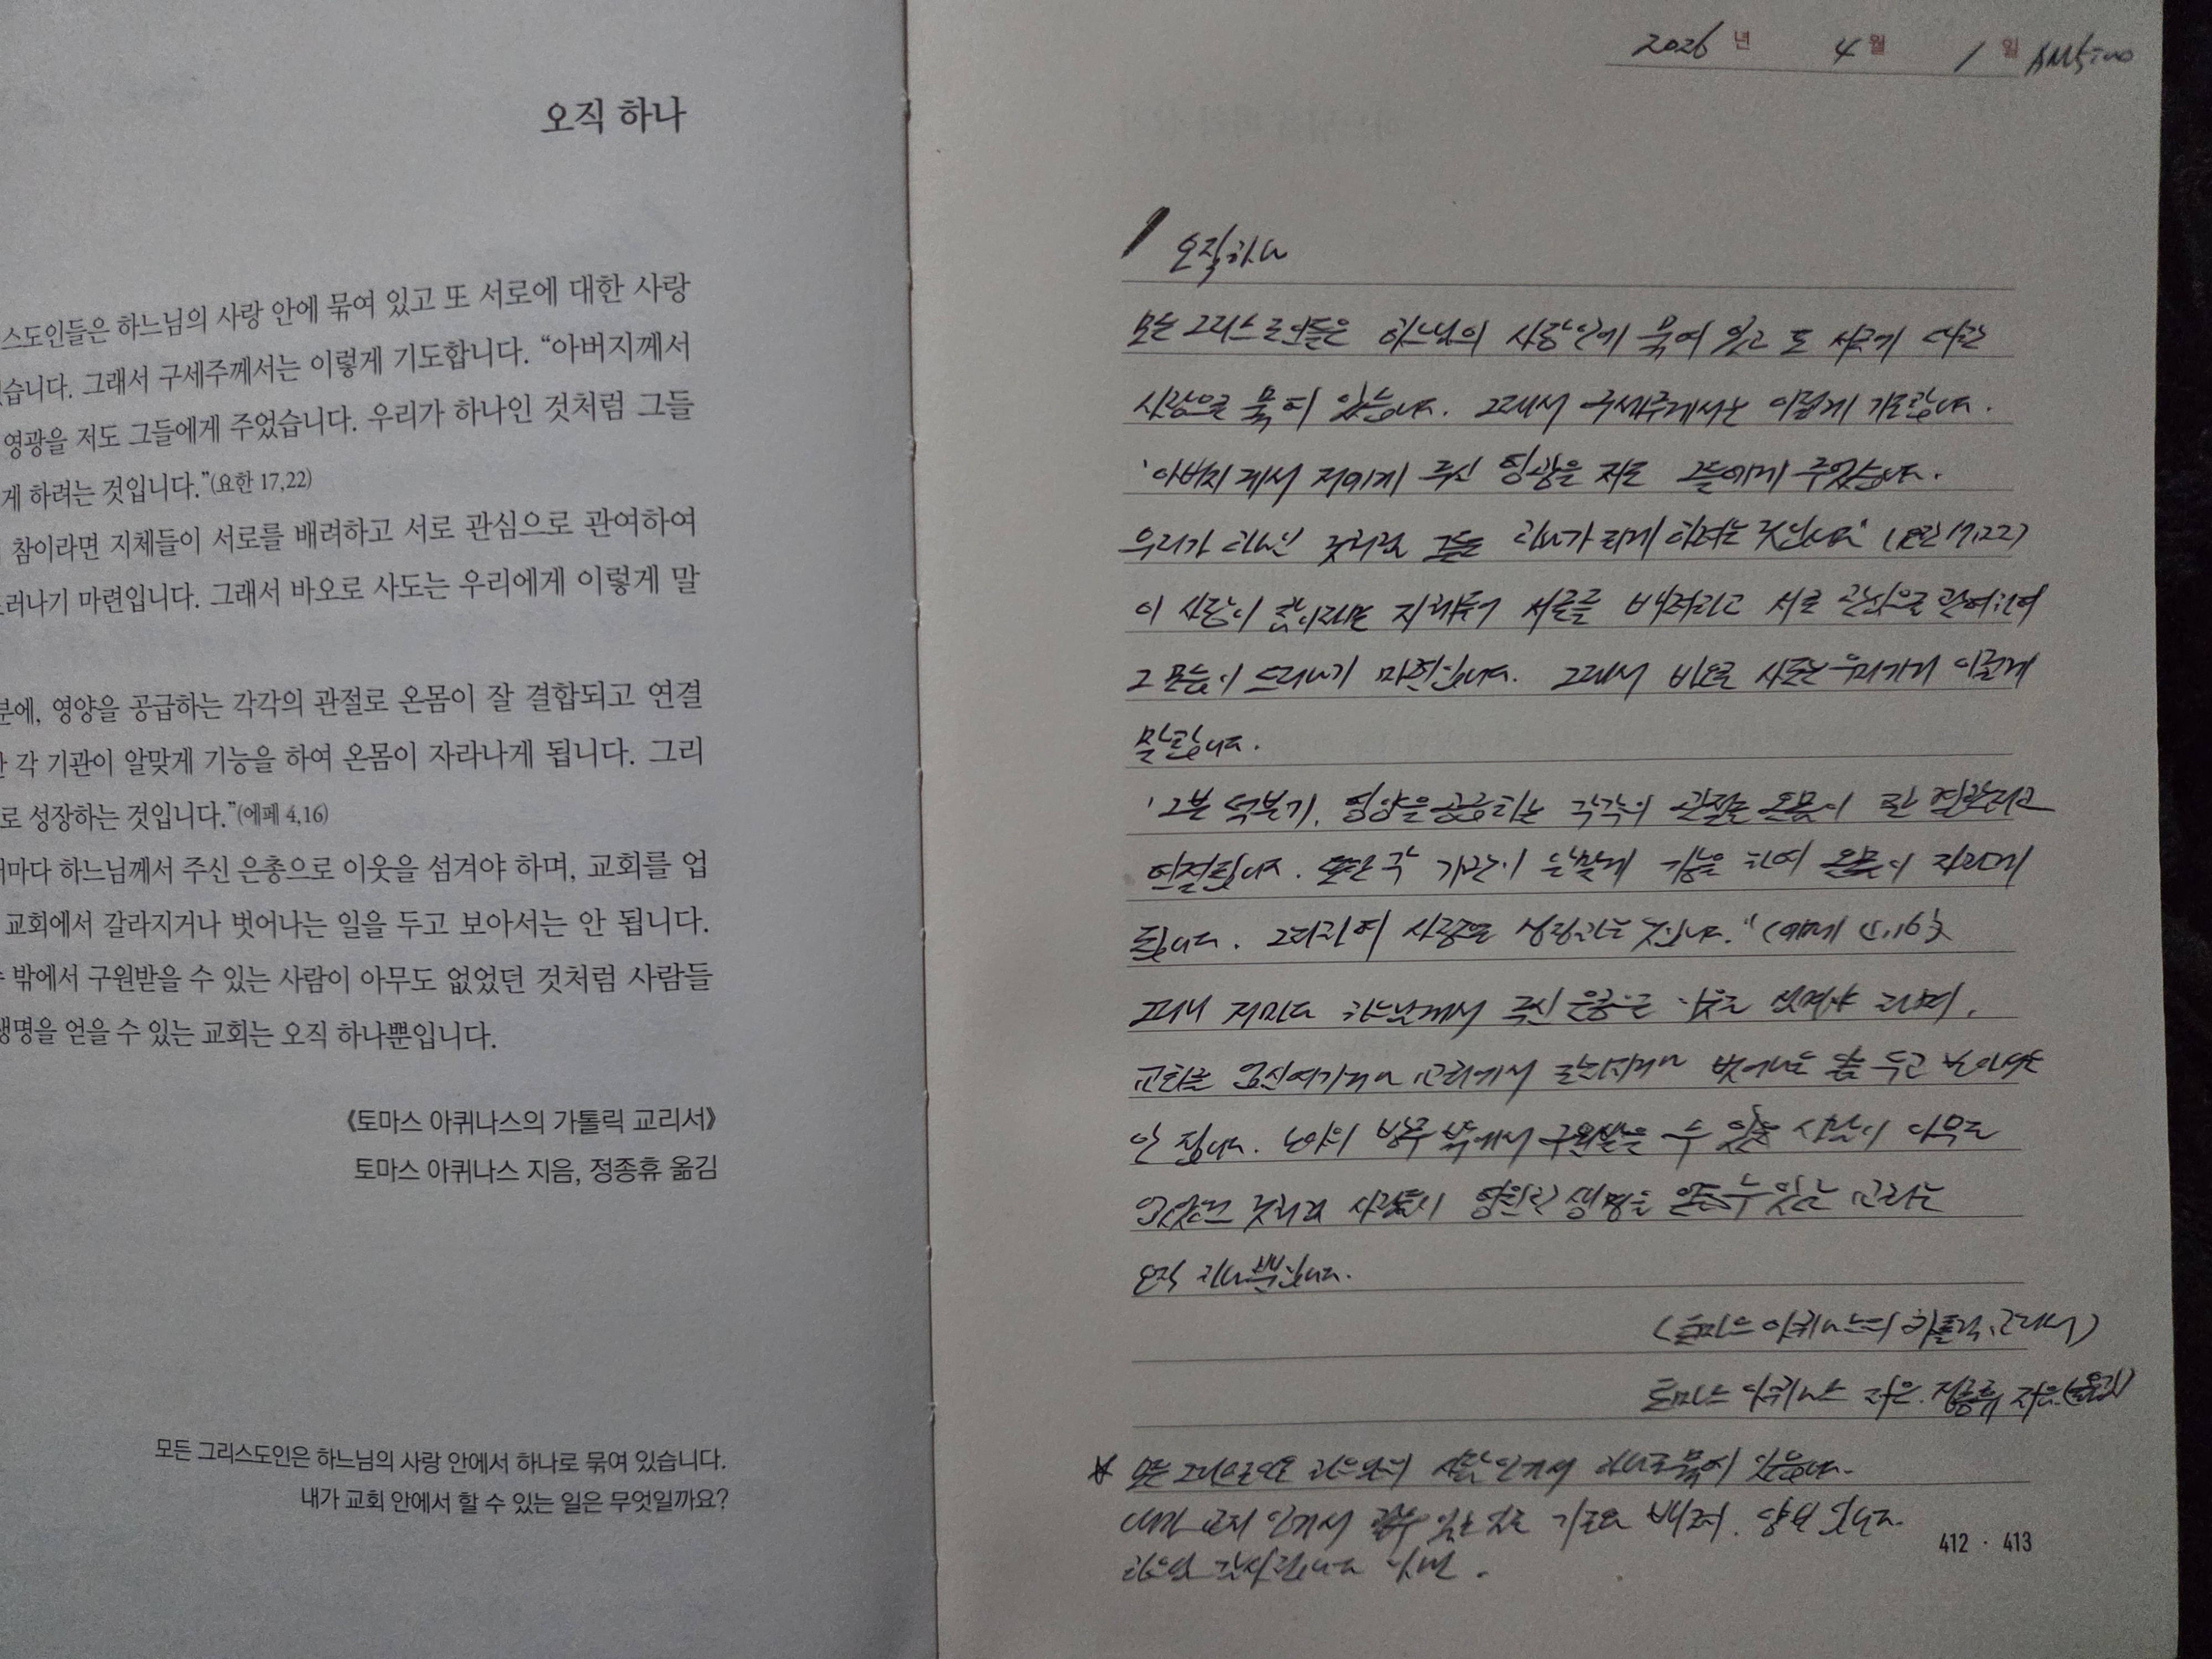 오직 하나
스도인들은 하느님의 사랑 안에 묶여 있고 또 서로에 대한 사랑
있습니다. 그래서 구세주께서는 이렇게 기도합니다. “아버지께서
영광을 저도 그들에게 주었습니다. 우리가 하나인 것처럼 그들
게 하려는 것입니다.”(요한 17,22)
참이라면 지체들이 서로를 배려하고 서로 관심으로 관여하여
러나기 마련입니다. 그래서 바오로 사도는 우리에게 이렇게 말
분에, 영양을 공급하는 각각의 관절로 온몸이 잘 결합되고 연결
각 기관이 알맞게 기능을 하여 온몸이 자라나게 됩니다. 그리
로 성장하는 것입니다.”(에페 4,16)
저마다 하느님께서 주신 은총으로 이웃을 섬겨야 하며, 교회를 업
교회에서 갈라지거나 벗어나는 일을 두고 보아서는 안 됩니다.
밖에서 구원받을 수 있는 사람이 아무도 없었던 것처럼 사람들
생명을 얻을 수 있는 교회는 오직 하나뿐입니다.
《토마스 아퀴나스의 가톨릭 교리서》
토마스 아퀴나스 지음, 정종휴 옮김
모든 그리스도인은 하느님의 사랑 안에서 하나로 묶여 있습니다.
내가 교회 안에서 할 수 있는 일은 무엇일까요?
2026 년 4 월 1 일 AM5:00
오직 하나
모든 그리스도인들은 하느님의 사랑 안에 묶여 있고 또 서로에 대한
사랑으로 묶여 있습니다. 그래서 구세주께서는 이렇게 기도합니다.
'아버지께서 저에게 주신 영광을 저도 그들에게 주었습니다.
우리가 하나인 것처럼 그들도 하나가 되게 하려는 것입니다" (요한 17,22)
이 사랑이 참이라면 지체들이 서로를 배려하고 서로 관심으로 관여하여
그 모습이 드러나기 마련입니다. 그래서 바오로 사도는 우리에게 이렇게
말합니다.
'그분 덕분에, 영양을 공급하는 각각의 관절로 온몸이 잘 결합되고
연결됩니다. 또한 각 기관이 알맞게 기능을 하여 온몸이 자라게
됩니다. 그리하여 사랑으로 성장하는 것입니다." (에페 4,16)
저마다 하느님께서 주신 은총으로 이웃을 섬겨야 하며,
교회를 업신여기거나 교회에서 갈라지거나 벗어나는 일을 두고 보아서는
안 됩니다. 노아의 방주 밖에서 구원받을 수 있는 사람이 아무도
없었던 것처럼 사람들이 영원한 생명을 얻을 수 있는 교회는
오직 하나뿐입니다.
(토마스 아퀴나스의 가톨릭 교리서)
토마스 아퀴나스 지은. 정종휴 지음(옮김)
* 모든 그리스도인은 하느님의 사랑 안에서 하나로 묶여 있습니다.
내가 교회 안에서 할 수 있는 일은 기도와 배려. 양보 입니다.
하느님 감사합니다 아멘.
412 · 413